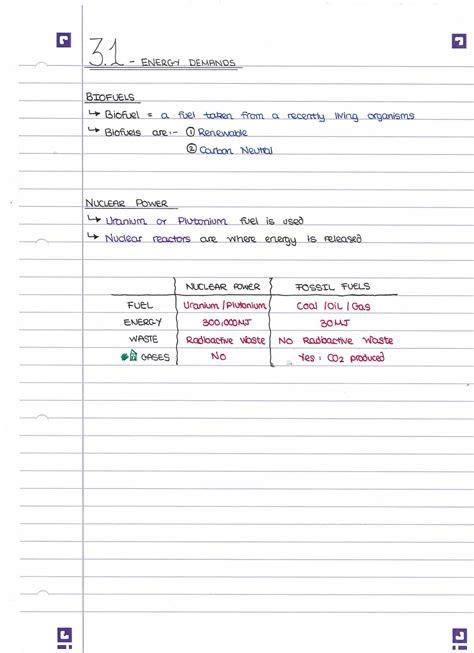 3.1 - ENERGY DEMANDS
BIOFUELS
↳ Biofuel = a fuel taken from a recently living organisms
↳ Biofuels are:- ① Renewable
② Carbon Neutral
NUCLEAR POWER
↳ Uranium or Plutonium fuel is used
↳ Nuclear reactors are where energy is released
NUCLEAR POWER FOSSIL FUELS
FUEL Uranium/Plutonium Coal/Oil/Gas
ENERGY 300,000MJ 30MJ
WASTE Radioactive Waste No Radioactive Waste
GASES No Yes: CO2 produced